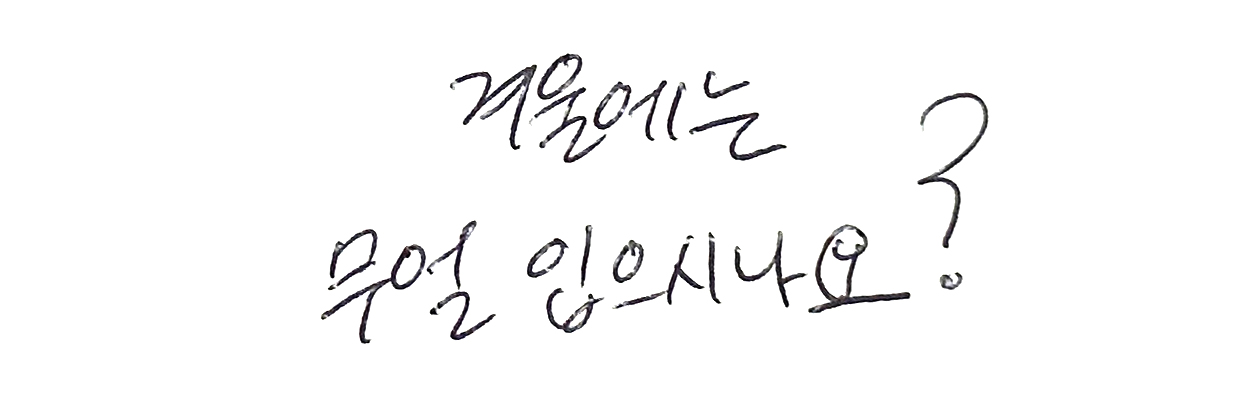 겨울에는
무얼 입으시나요?